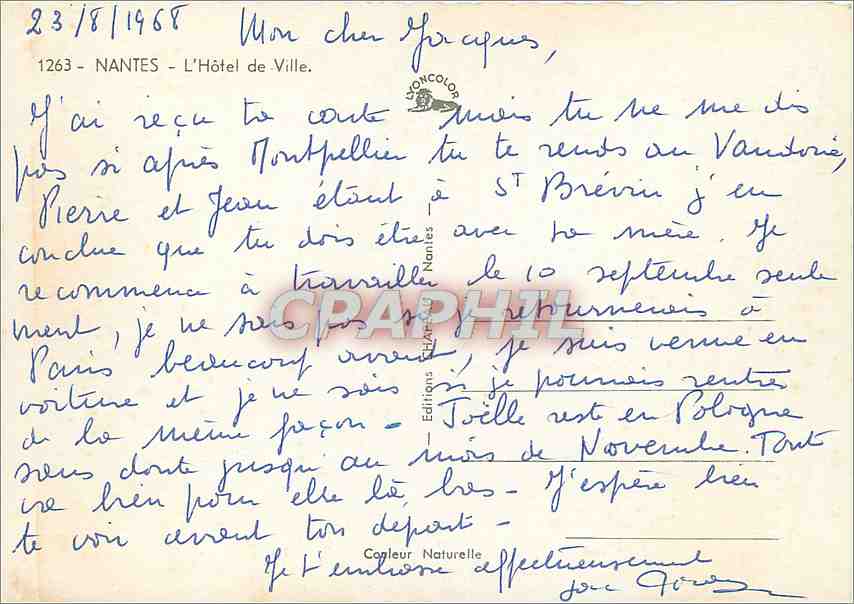 23/8/1968 Mon cher Jacques,
1263 - NANTES - L'Hôtel de Ville.
LYONCOLOR
J'ai reçu ta carte mais tu ne me dis
pas si après Montpellier tu te rends au
Pierre et Jean étant à ST Brévin j'en
conclue que tu dois être avec ta mère. Je
recommence à travailler le 10 septembre seule
ment, je ne sais pas si je retournerais à
Paris beaucoup avant, je suis venue en
voiture et je ne sais si je pourrais rentrer
de la même façon - Joëlle reste en Pologne
sans doute jusqu'au mois de Novembre. Tout
va bien pour elle là, bas - J'espère bien
te voir avant ton départ -
Je t'embrasse affectueusement
Editions CHAPEAU - Nantes
Couleur Naturelle
CPAPHIL